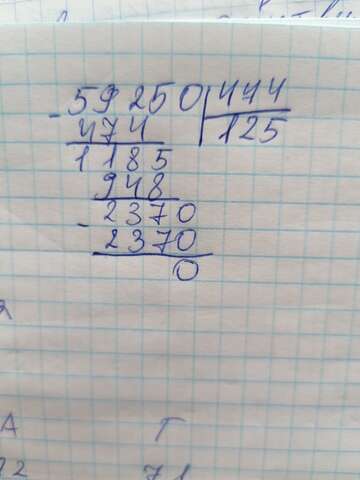 59250 474
- 474 125
1185
948
- 2370
2370
0
А Т